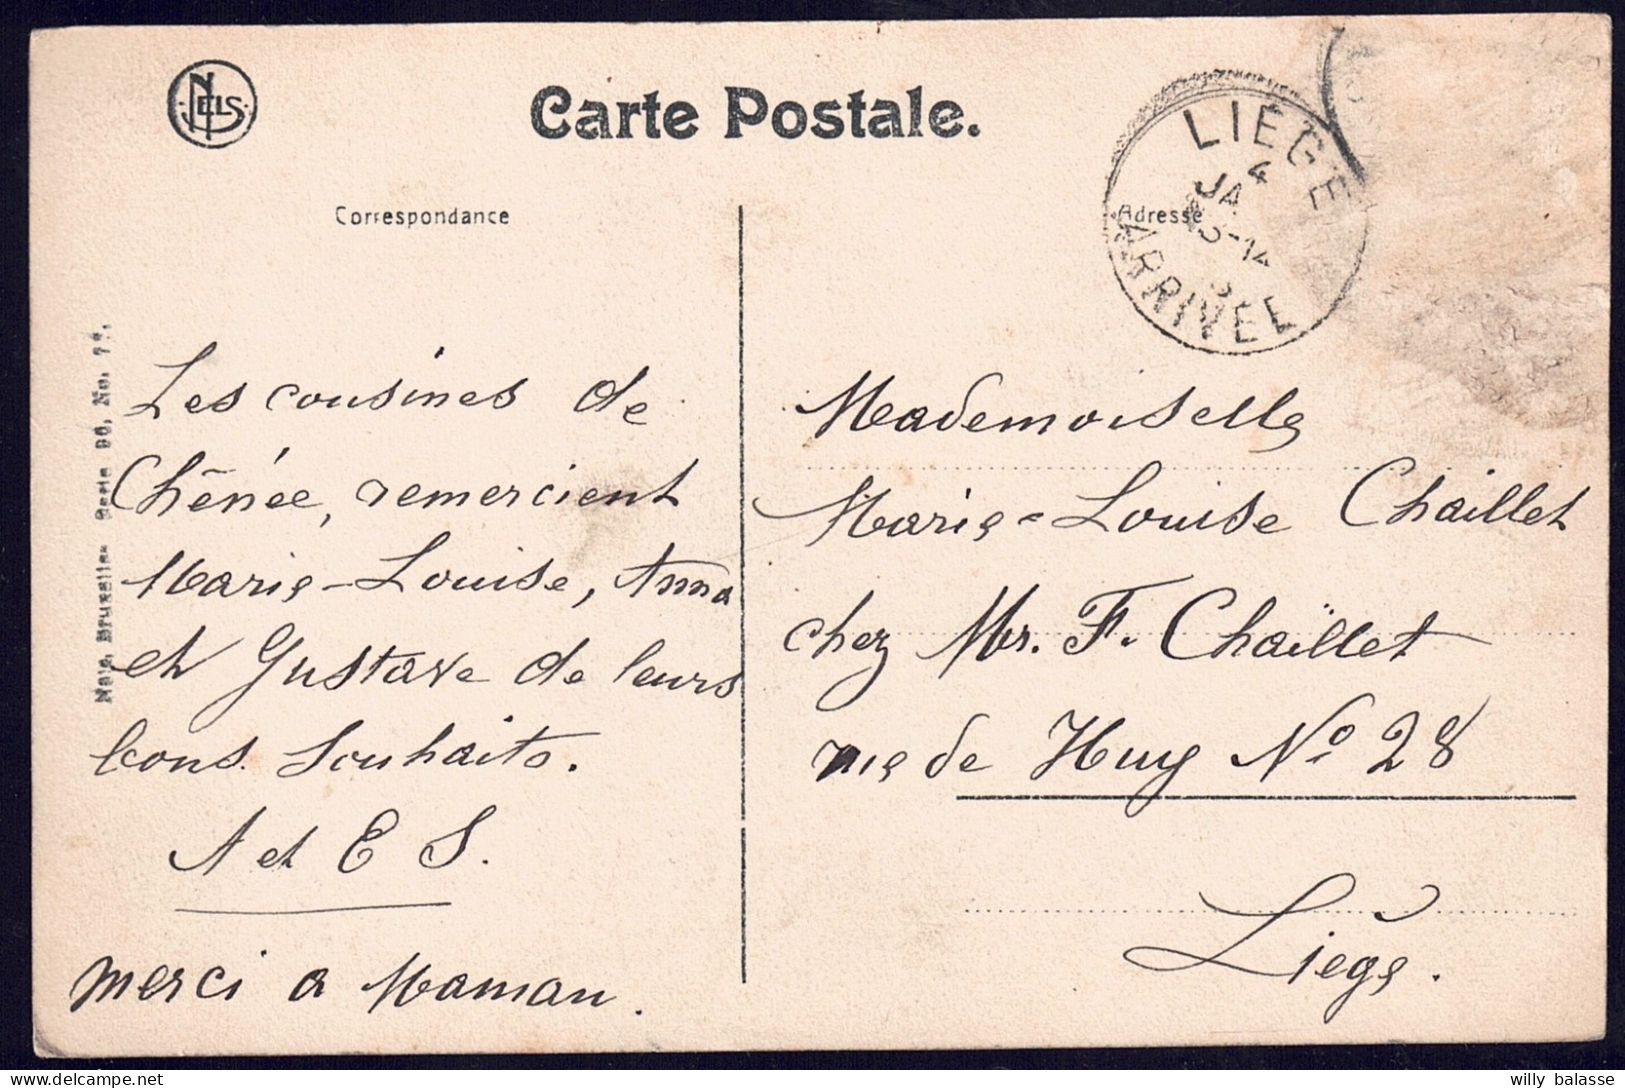 NELS
Carte Postale.
LIÉGE
4
JA
13-14
ARRIVÉE
Correspondance
Adresse
Les cousines de
Chênée, remercient
Marie-Louise, Anna
et Gustave de leurs
bons souhaits.
A et E S.
merci a Maman.
Nels, Bruxelles Serie 96, No.
Mademoiselle
Marie-Louise Chaillet
chez Mr. F. Chaïllet
rue de Huy No 28
Liège.
willy balasse